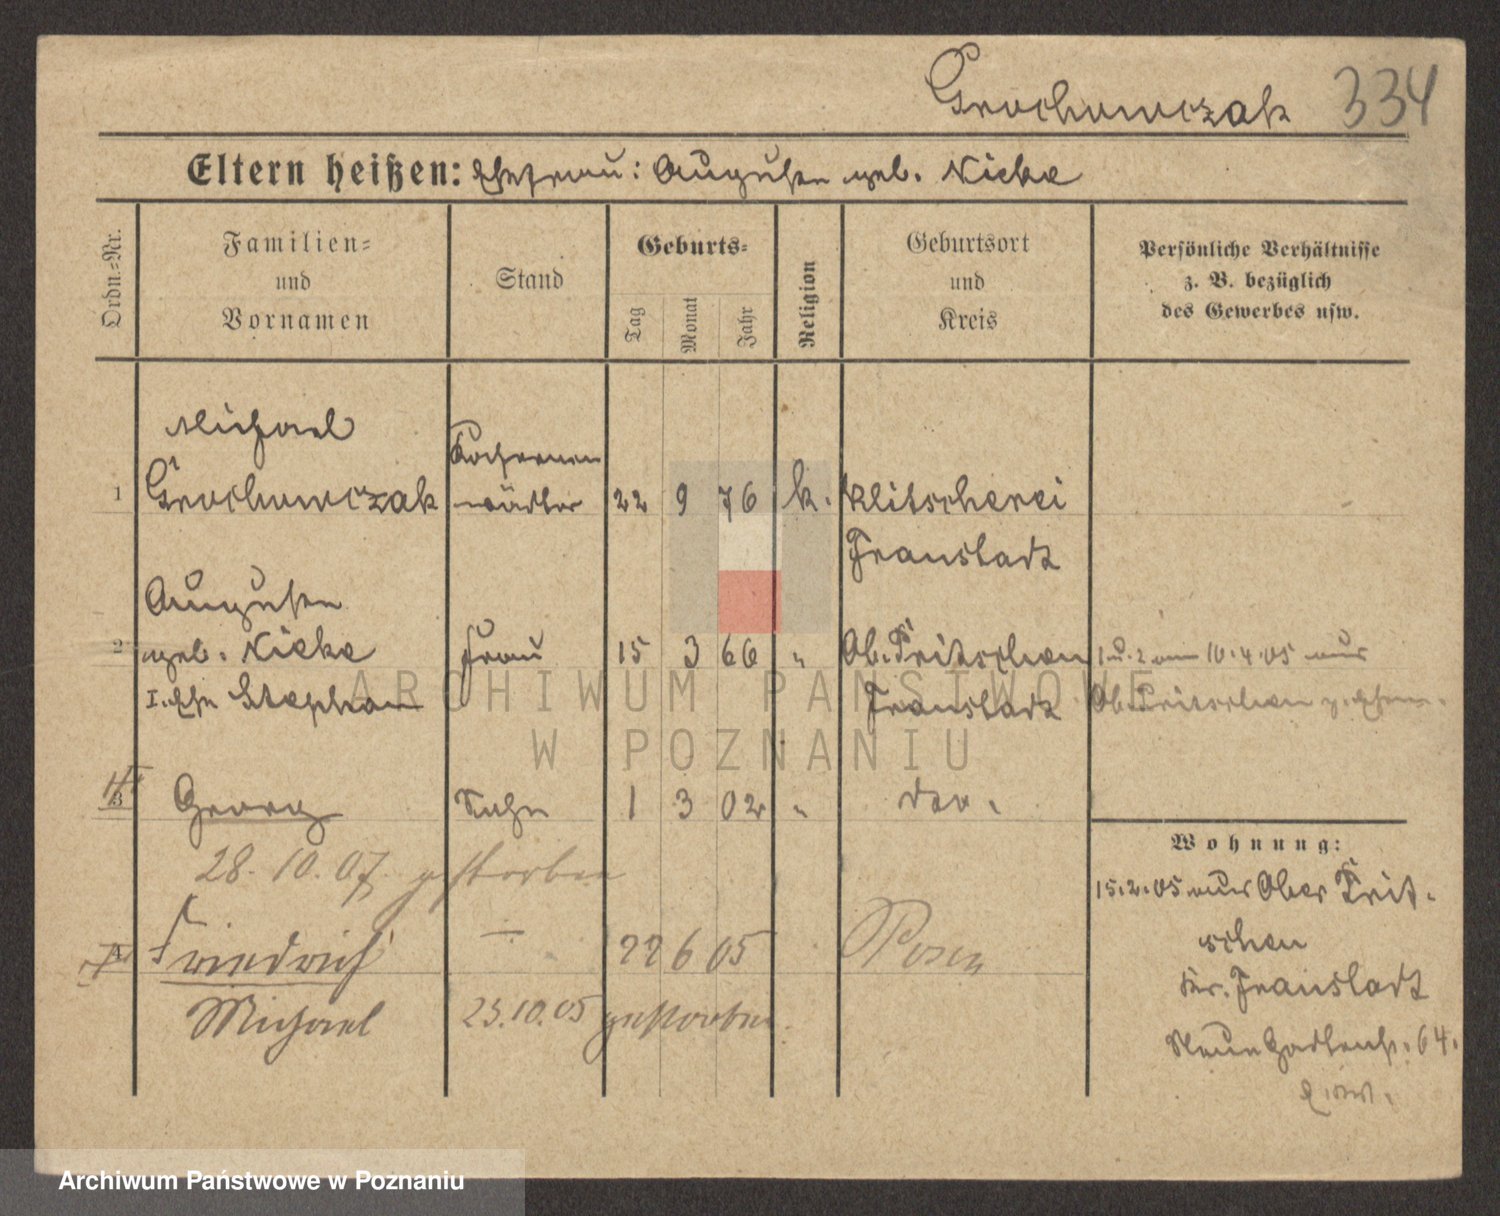 Grochowczak 334
Eltern heißen: Ehefrau: Augusten geb. Nicke
Ordn.-Nr.
Familien-
und
Vornamen
Stand
Geburts-
Tag
Monat
Jahr
Religion
Geburtsort
und
Kreis
Persönliche Verhältnisse
z. B. bezüglich
des Gewerbes usw.
Michael
1 Grochowczak 22 9 76 k. Klitscherei
Fraustadt
Augusten
2 geb. Nicke Frau 15 3 66 " Ob. Pritschen 1 u. 2 am 10.4.05 aus
I. Ehe Stephan Fraustadt Ob. Pritschen
3 Georg Sohn 1 3 02 "
28.10.07 gestorben
4 Friedrich — 22 6 05 Posen
Michael 23.10.05 gestorben
Wohnung:
15.2.05 aus Ober Prit-
schen
Kr. Fraustadt
Neue Gartenstr. 64.
ARCHIWUM PAŃSTWOWE
W POZNANIU
Archiwum Państwowe w Poznaniu